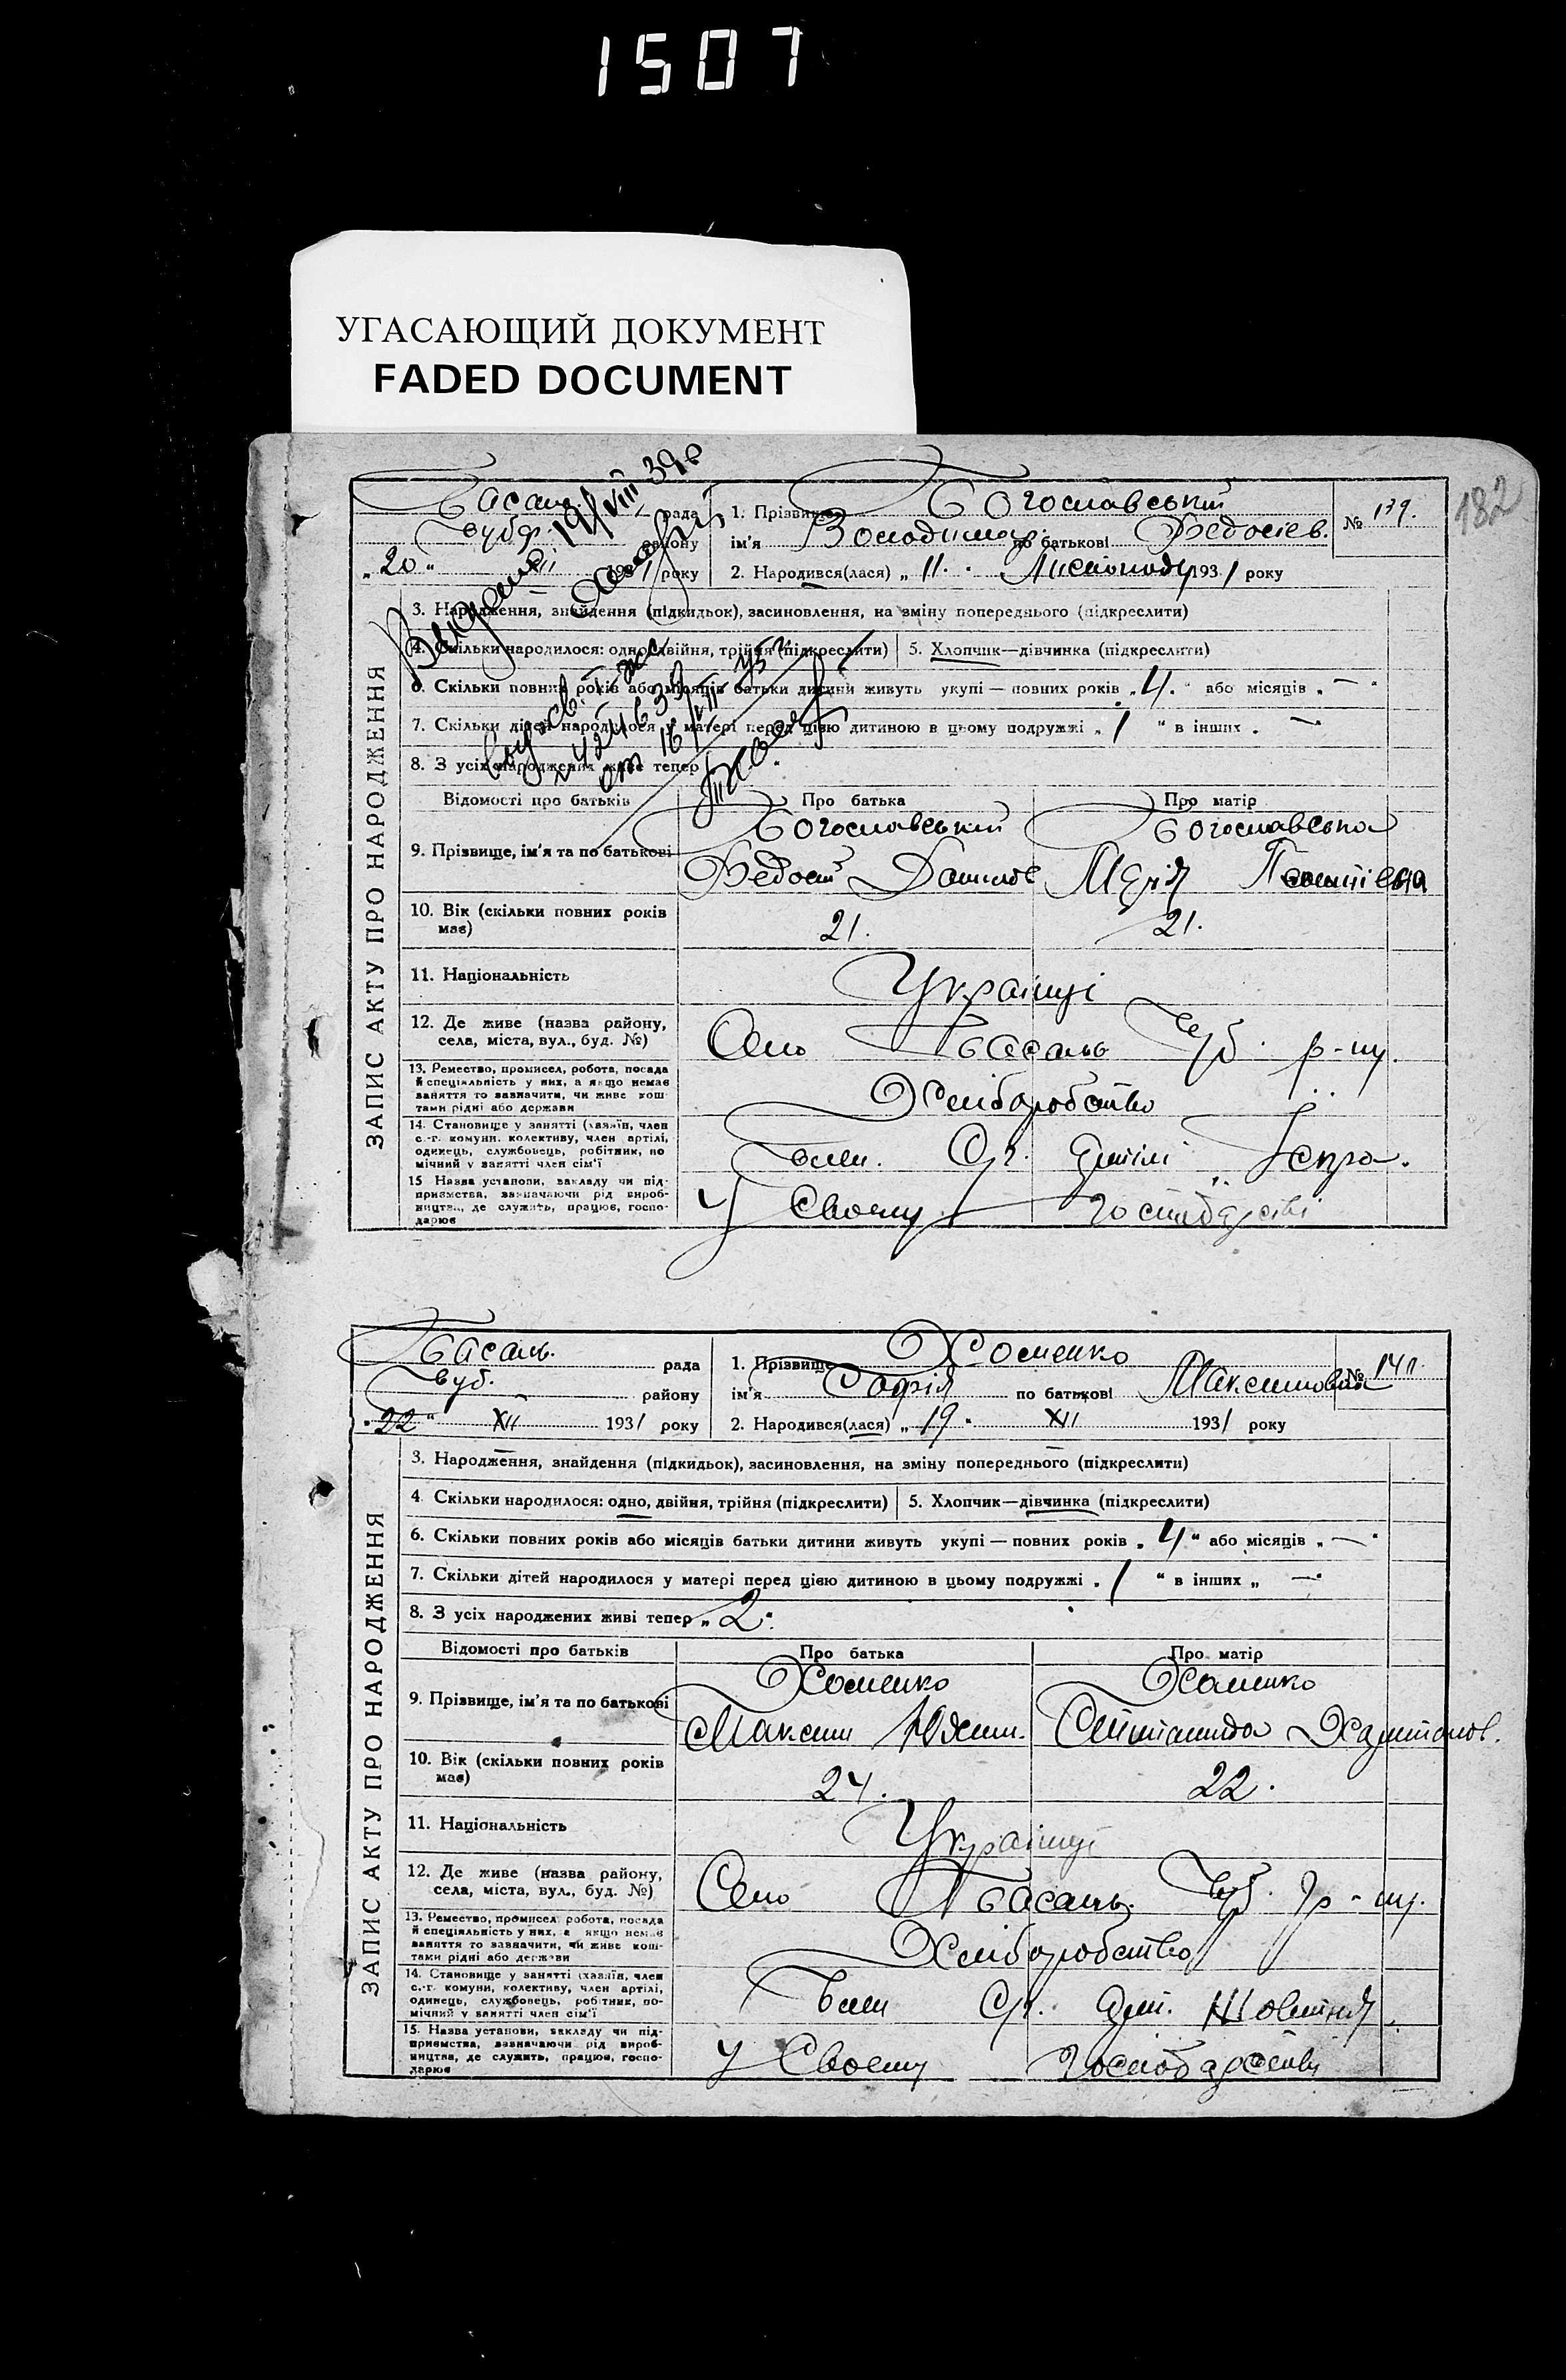 1507
УГАСАЮЩИЙ ДОКУМЕНТ
FADED DOCUMENT
182
ЗАПИС АКТУ ПРО НАРОДЖЕННЯ
Басань рада
Чубар. району
„20“ XII 1931 року
1. Прізвище Богославський
ім'я Володимир по батькові Федосієв.
№ 139.
2. Народився(лася) „11.“ Листопаду 1931 року
19/VIII 39 г
3. Народження, знайдення (підкидьок), засиновлення, на зміну попереднього (підкреслити)
4. Скільки народилося: одно, двійня, трійня (підкреслити) 5. Хлопчик—дівчинка (підкреслити)
6. Скільки повних років або місяців батьки дитини живуть укупі — повних років „4.“ або місяців „—“
7. Скільки дітей народилося у матері перед цією дитиною в цьому подружжі „1“ в інших „—“
8. З усіх народжених живі тепер
Відомості про батьків Про батька Про матір
9. Прізвище, ім'я та по батькові
Богославський Богославська
Федосій Данилов Марія
10. Вік (скільки повних років має) 21. 21.
11. Національність Українці
12. Де живе (назва району, села, міста, вул., буд. №) Село Басань Чуб. р-ну.
13. Ремество, промисел, робота, посада й спеціяльність у них, а якщо немає заняття то зазначити, чи живе коштами рідні або держави Хліборобство
14. Становище у занятті (хазяїн, член с.-г. комуни, колективу, член артілі, одинець, службовець, робітник, помічний у занятті член сім'ї Член. С/г. артілі Іскра.
15 Назва установи, закладу чи підприємства, зазначаючи рід виробництва, де служить, працює, господарює У своему господарстві
ЗАПИС АКТУ ПРО НАРОДЖЕННЯ
Басань. рада
Чуб. району
„22“ XII 1931 року
1. Прізвище Хоменко
ім'я Софія по батькові Максимовна
№ 140.
2. Народився(лася) „19“ XII 1931 року
3. Народження, знайдення (підкидьок), засиновлення, на зміну попереднього (підкреслити)
4 Скільки народилося: одно, двійня, трійня (підкреслити) 5. Хлопчик—дівчинка (підкреслити)
6. Скільки повних років або місяців батьки дитини живуть укупі — повних років „4“ або місяців „—“
7. Скільки дітей народилося у матері перед цією дитиною в цьому подружжі „1“ в інших „—“
8. З усіх народжених живі тепер „2“
Відомості про батьків Про батька Про матір
9. Прізвище, ім'я та по батькові
Хоменко Хоменко
Максим Степанида Харитонов.
10. Вік (скільки повних років має) 24. 22.
11. Національність Українці
12. Де живе (назва району, села, міста, вул., буд. №) Село Басань. Чуб. р-ну.
13. Ремество, промисел, робота, посада й спеціяльність у них, а якщо немає заняття то зазначити, чи живе коштами рідні або держави Хліборобство
14. Становище у занятті (хазяїн, член с.-г. комуни, колективу, член артілі, одинець, службовець, робітник, помічний у занятті член сім'ї Член С/г. арт. Жовтня.
15. Назва установи, закладу чи підприємства, зазначаючи рід виробництва, де служить, працює, господарює У своему господарстві